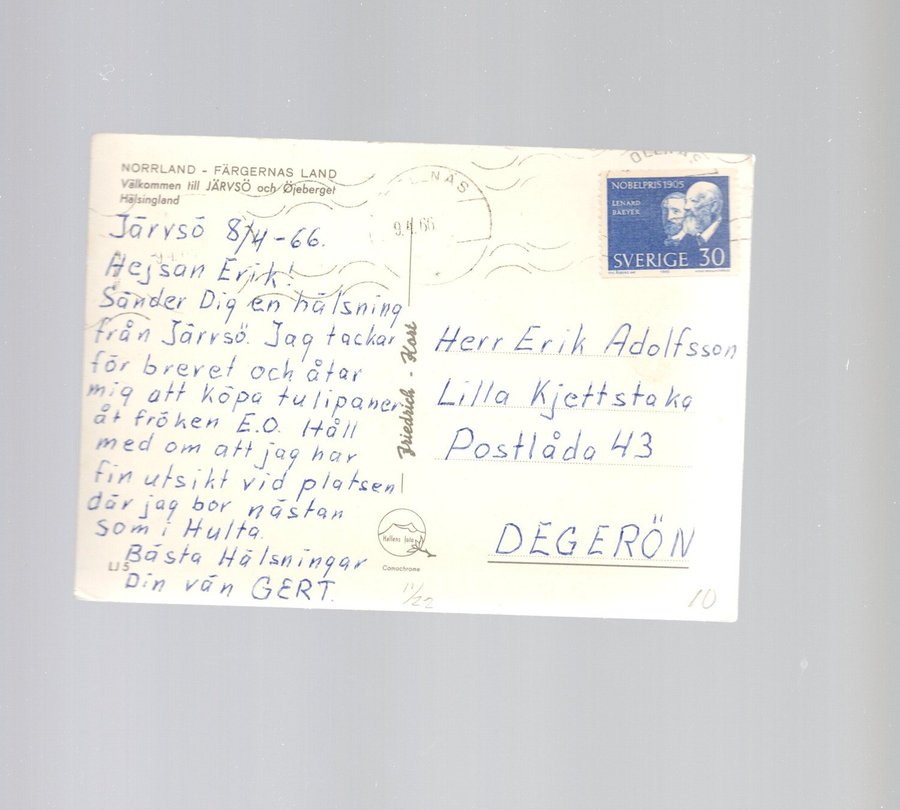 NORRLAND - FÄRGERNAS LAND
Välkommen till JÄRVSÖ och Øjeberget
Hälsingland
Järvsö 8/4-66.
Hejsan Erik!
Sänder Dig en hälsning
från Järvsö. Jag tackar
för brevet och åtar
mig att köpa tulipaner
åt fröken E.O. Håll
med om att jag har
fin utsikt vid platsen
där jag bor nästan
som i Hulta.
Bästa Hälsningar
Din vän GERT.
LJ 5
9.4.66
NOBELPRIS 1905
LENARD
BAEYER
SVERIGE 30
Friedrich - Kort
Herr Erik Adolfsson
Lilla Kjettstaka
Postlåda 43
DEGERÖN
Hellens foto
Conachrome
11/22
10